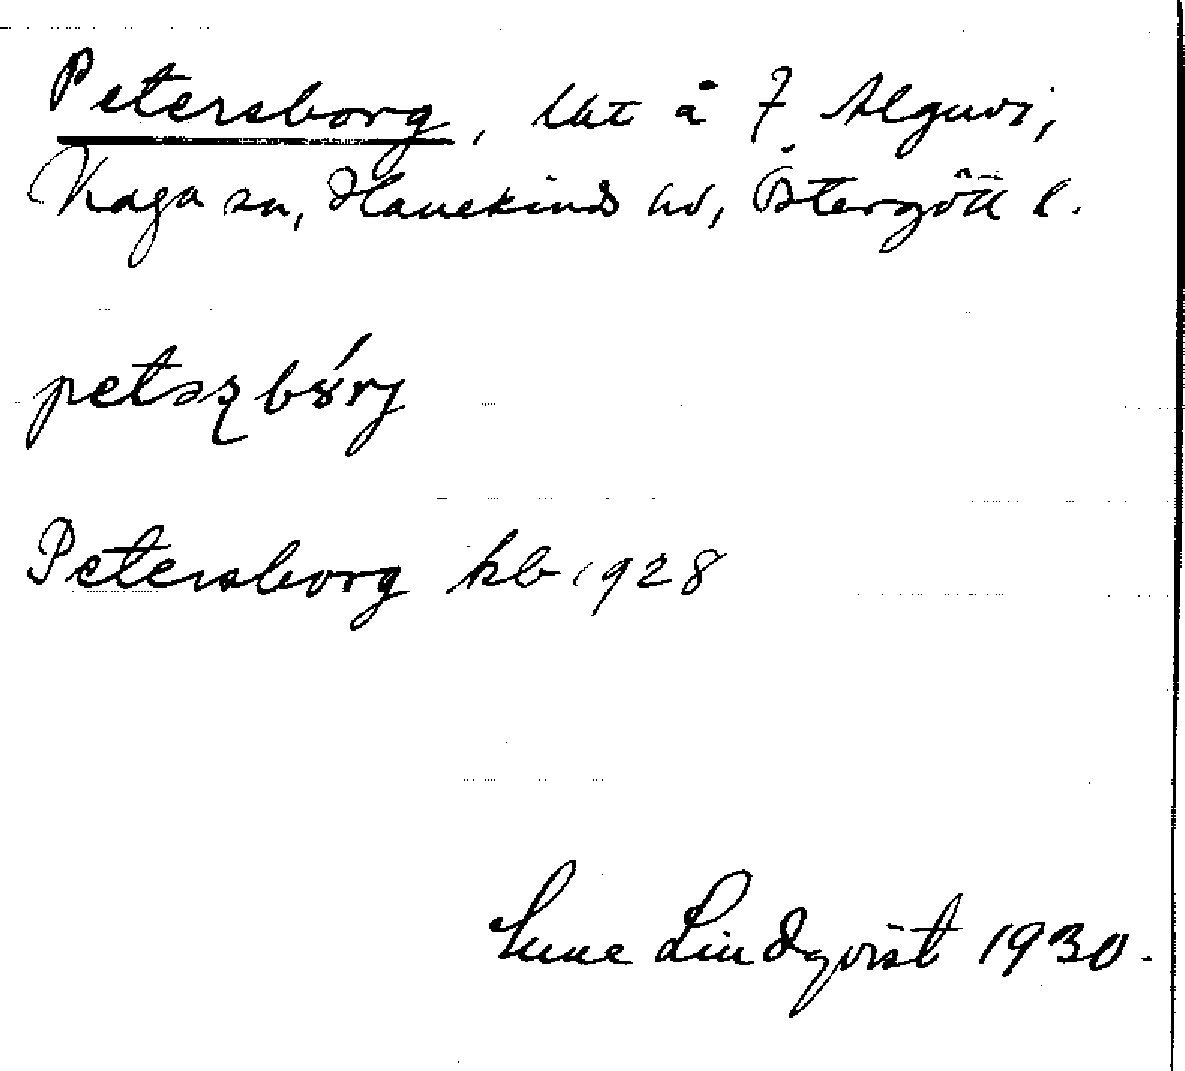 Petersborg, lht å 7 Algusvi,
Kaga sn, Hanekinds hd, Östergötl l.
petəʂbórj
Petersborg kb 1928
Sune Lindqvist 1930.